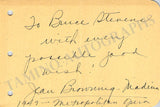 To Bruce Stevens
with every
possible good
wish!
Jean Browning-Madeira
1949 - Metropolitan Opera